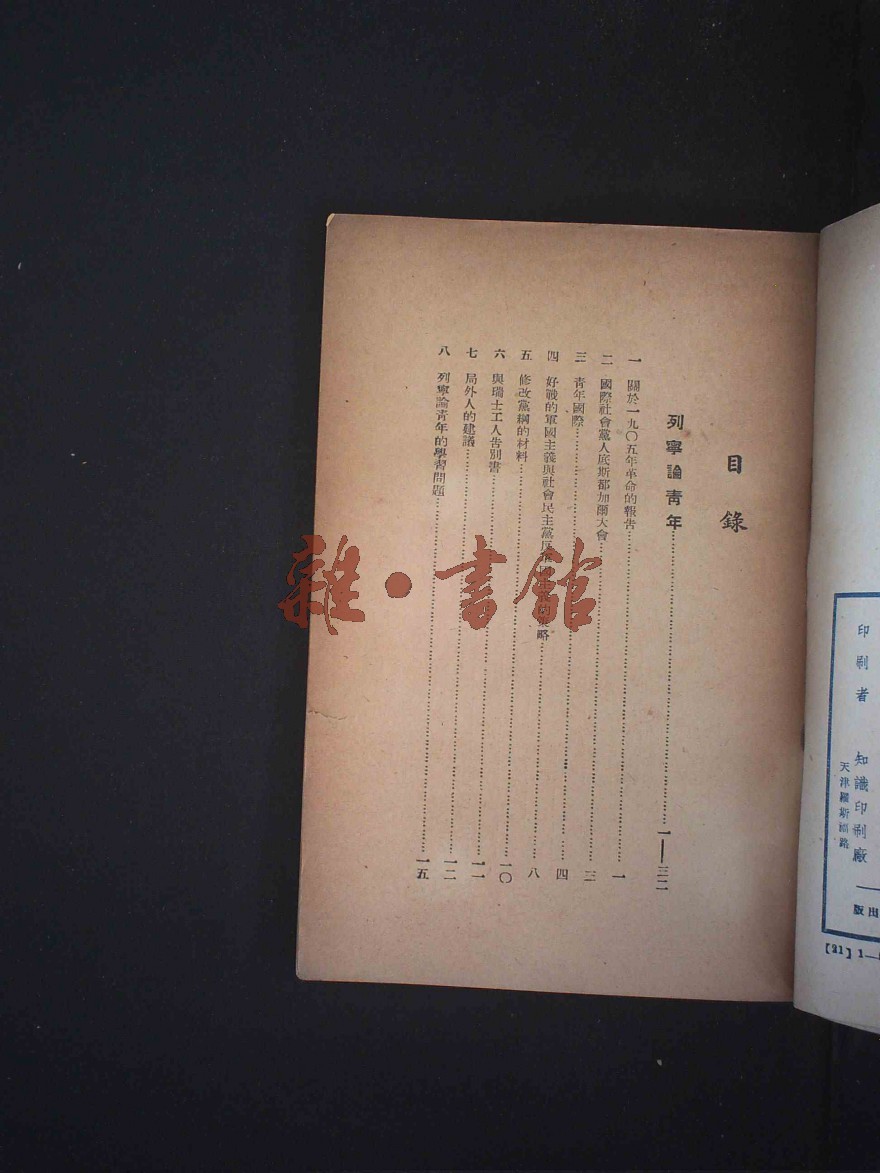 印刷者 知識印刷廠
天津羅斯福路
出版
[21] 1—
目錄
列寧論青年……一——三二
一 關於一九〇五年革命的報告……一
二 國際社會黨人底斯都加爾大會……三
三 青年國際……四
四 好戰的軍國主義與社會民主黨 策略……八
五 修改黨綱的材料……一〇
六 與瑞士工人告別書……一一
七 局外人的建議……一二
八 列寧論青年的學習問題……一五
雜·書館